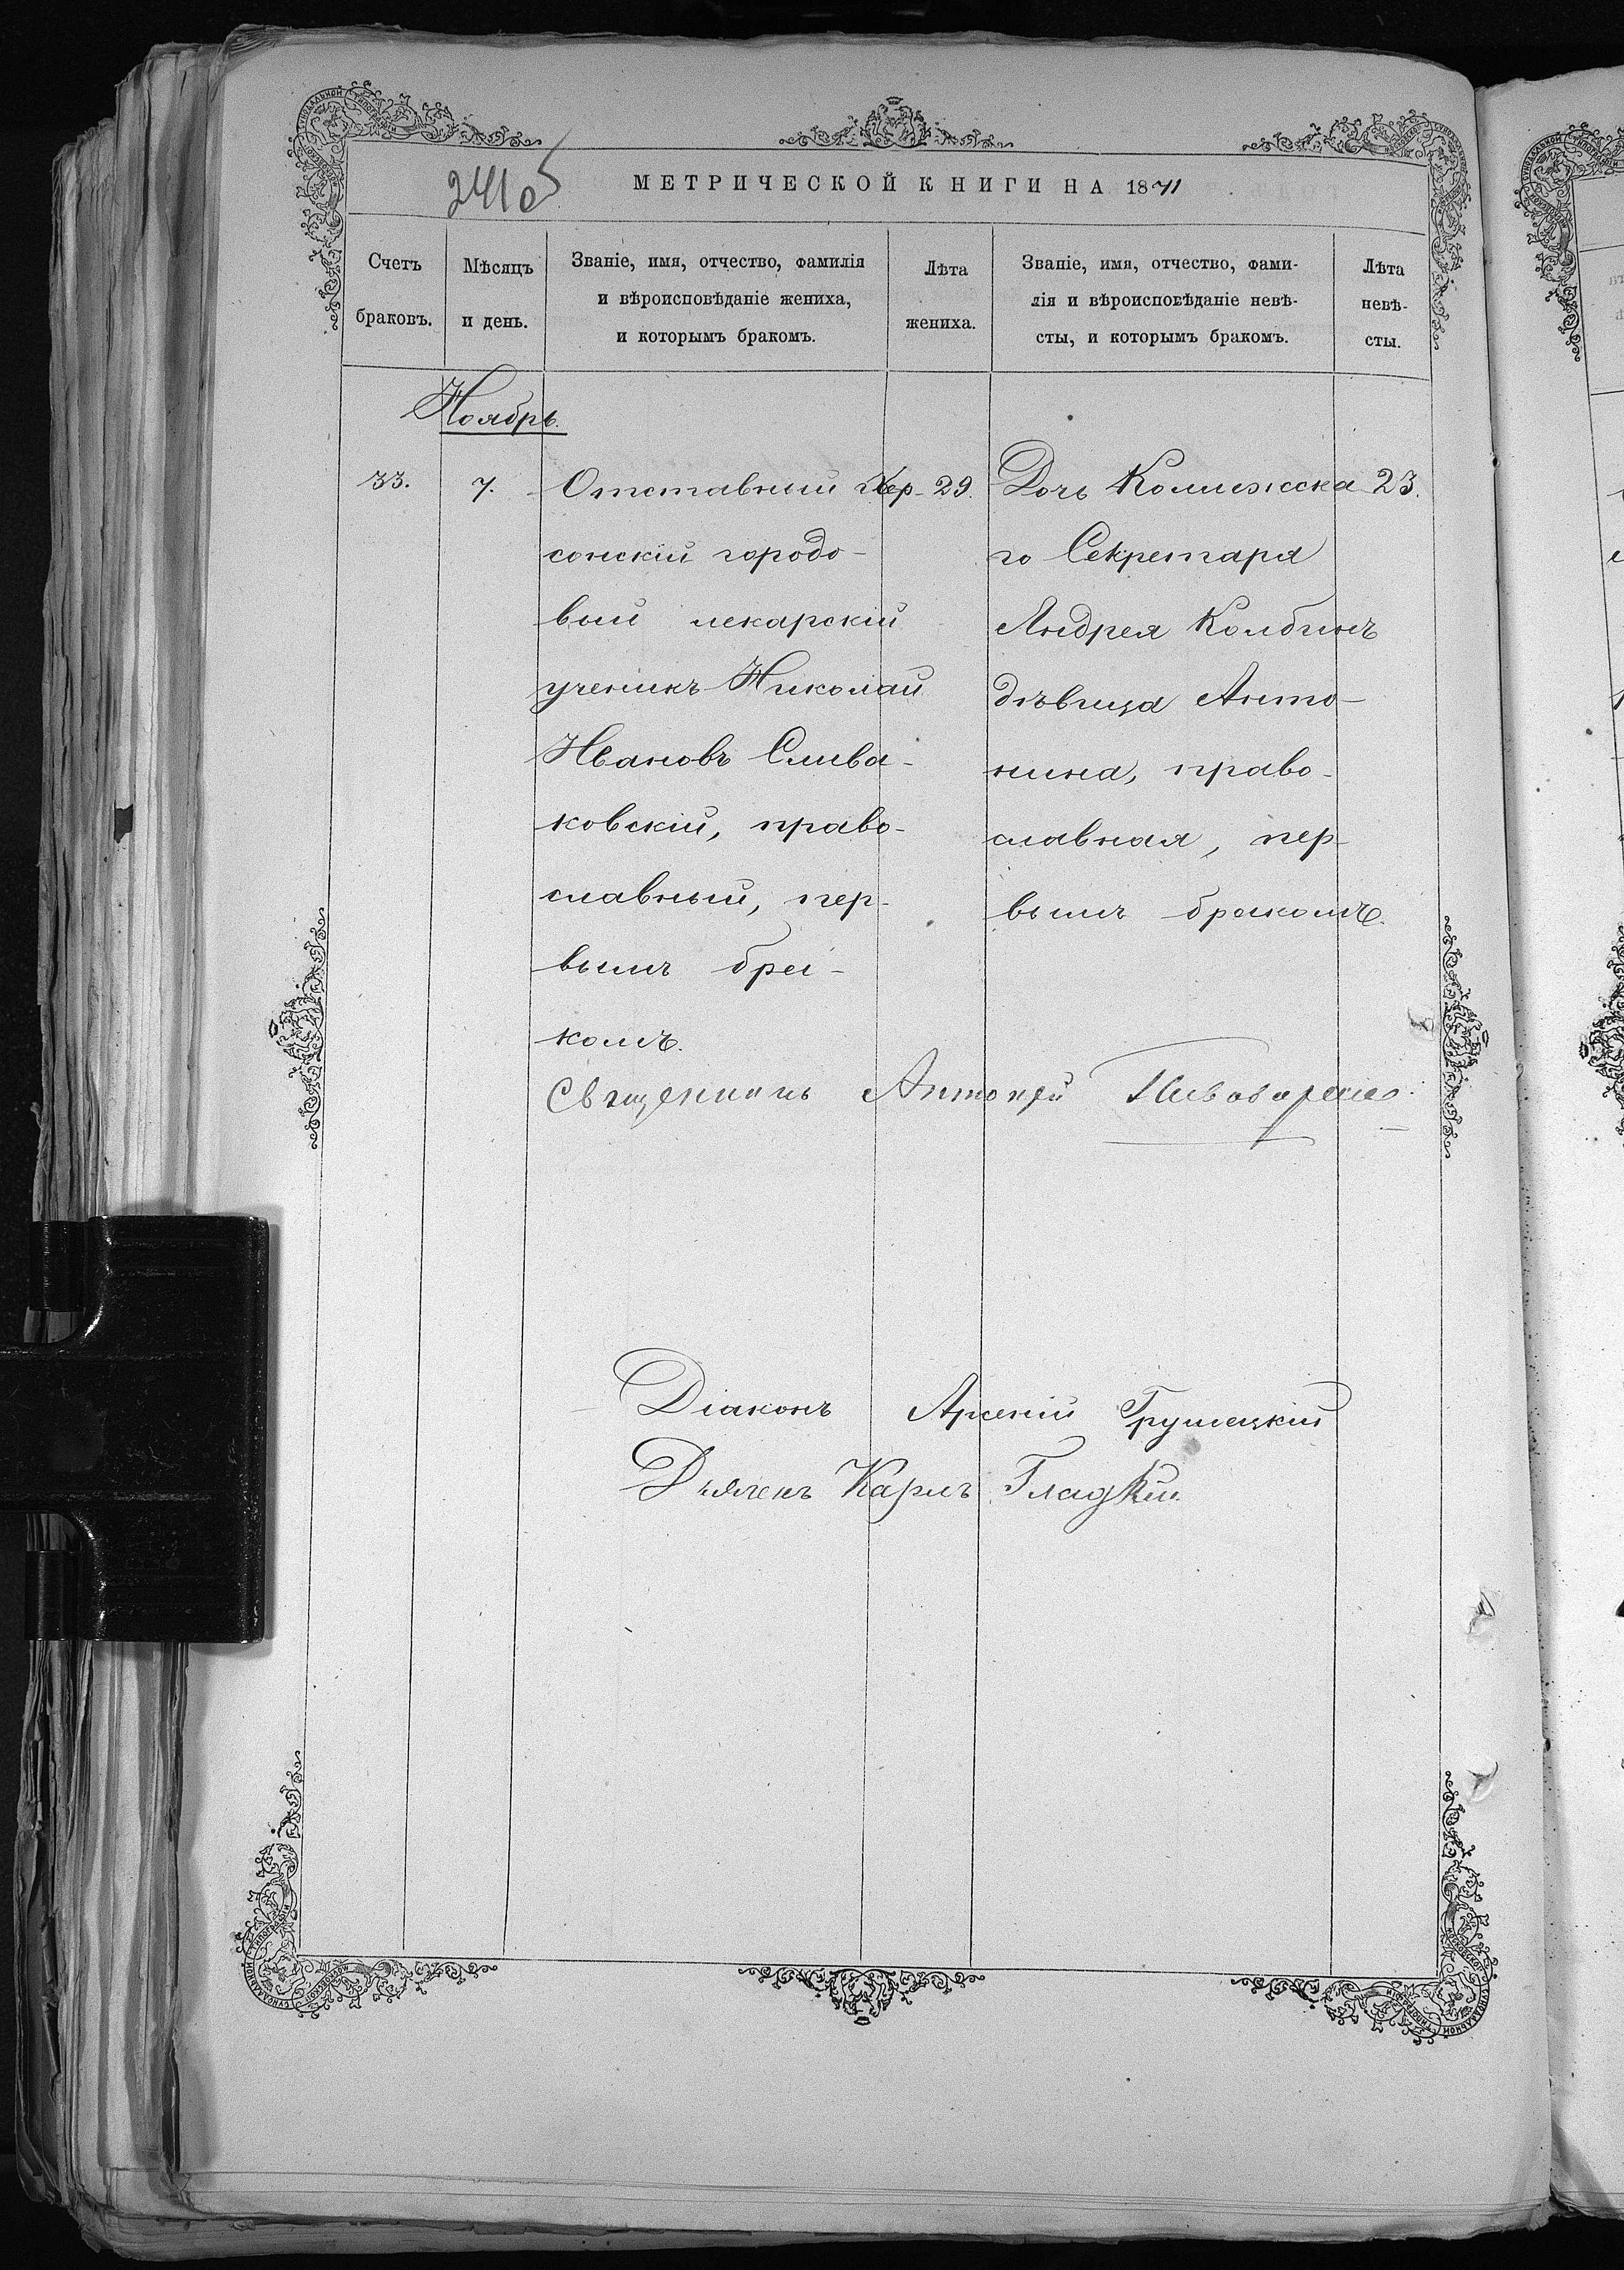 2410
МЕТРИЧЕСКОЙ КНИГИ НА 1871
Счетъ браковъ.
Мѣсяцъ и день.
Званіе, имя, отчество, фамилія
и вѣроисповѣданіе жениха,
и которымъ бракомъ.
Лѣта жениха.
Званіе, имя, отчество, фами-
лія и вѣроисповѣданіе невѣ-
сты, и которымъ бракомъ.
Лѣта невѣ-
сты.
Ноябрь.
33.
7.
Отставный Хер-
сонскій городо-
вый лекарскій
ученикъ Николай
Ивановъ Слива-
ковскій, право-
славный, пер-
вымъ бра-
комъ.
29.
Дочь Коллежска
го Секретаря
Андрея Колбинъ
дѣвица Анто-
нина, право-
славная, пер-
вымъ бракомъ.
23.
Священникъ Антоній
Діаконъ Арсеній Грушецкій
Дьячекъ Карпъ Гладкій